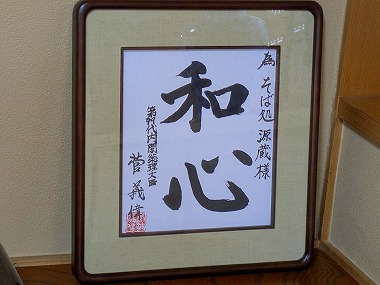 為 そば処 源蔵様
和心
第99代内閣総理大臣
菅 義偉